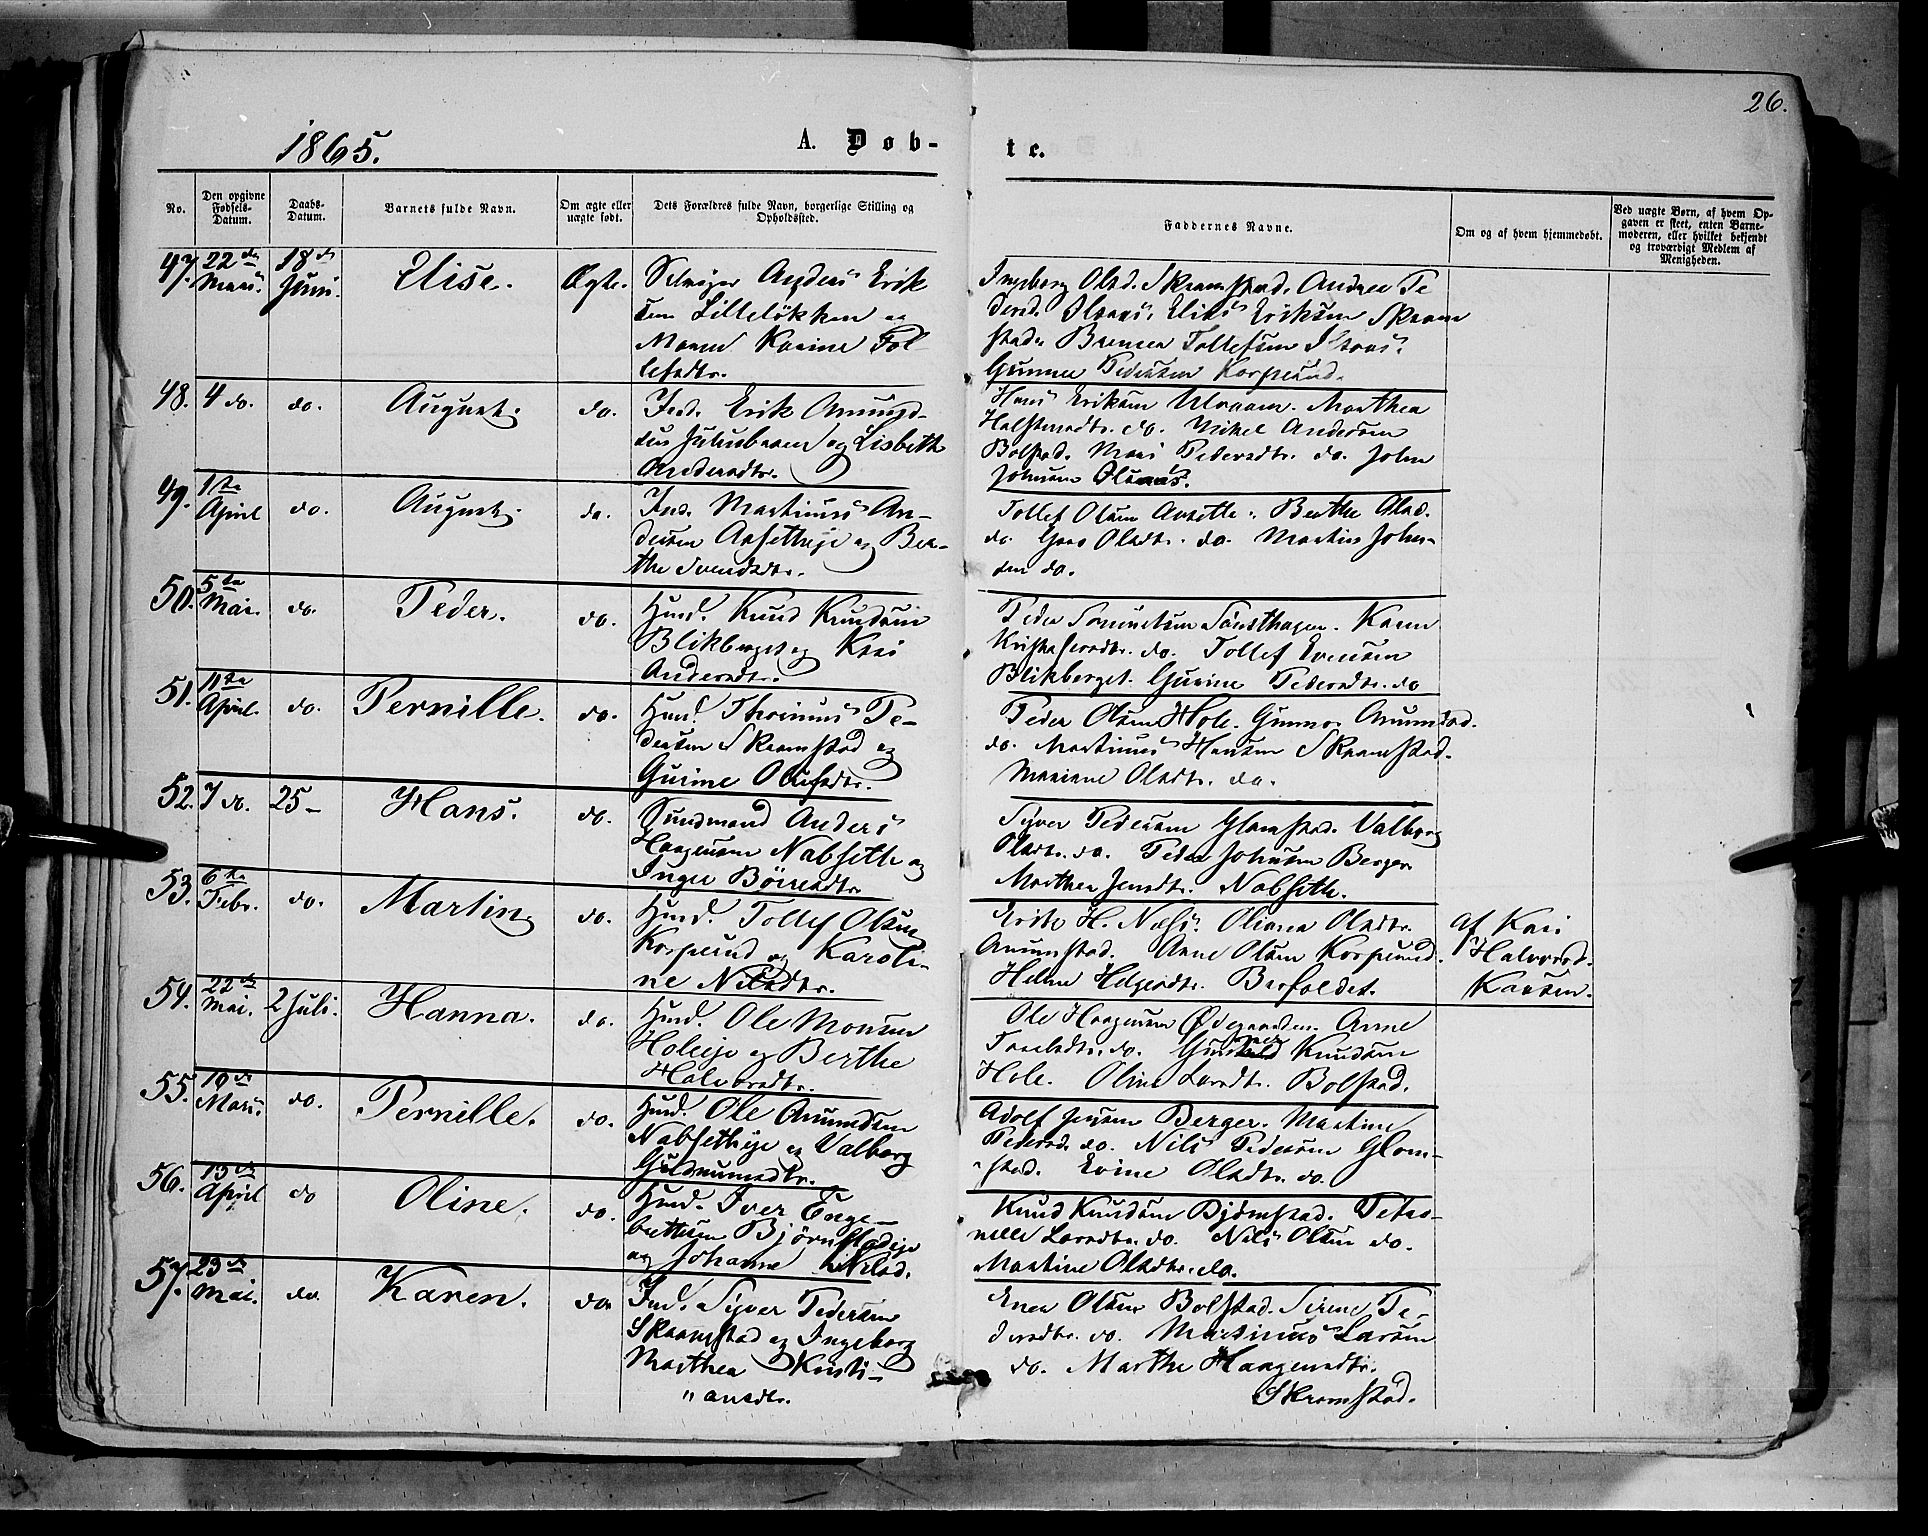 26.
1865.
A. Døb-
te.
No.
Den opgivne
Fødsels-
Datum.
Daabs-
Datum.
Barnets fulde Navn.
Om ægte eller
uægte født.
Dets Forældres fulde Navn, borgerlige Stilling og
Opholdssted.
Faddernes Navne.
Om og af hvem hjemmedøbt.
Ved uægte Børn, af hvem Op-
gaven er skeet, enten Barne-
moderen, eller hvilket bekjendt
og troværdigt Medlem af
Menigheden.
47. 22de 18de
Marts. Juni. Elise. Ægte.
Selveier Anders Erik
sen Lilleløkken og
Maren Karine Tol-
lefsdtr.
Ingeborg Olsd. Skramstad. Andrea Pe
dersd. Elias Eriksen Skram
stad. Tollefsen
Gunner Pedersen Korpeund.
48. 4 do. do. August. do.
Ind. Erik Amund-
sen og Lisbeth
Andersdtr.
Hans Eriksen Marthea
Halstensdtr. do. Mikel Andersen
Bolstad. Mari Pedersdtr. do. John
Johnsen
49. 1ste
April do. August. do.
Ind. Martinus An-
dersen Aasetheje og Ber-
the Svendsdtr.
Tollef Olsen Aasette. Berthe Olsd.
do. Olsdtr. do. Martin John-
sen do.
50. 5te
Mai. do. Peder. do.
Husd. Knud Knudsen
Blikberget og Kari
Andersdtr.
Peder Karen
Kristofersdtr. do. Tollef Evensen
Blikberget. Gurine Pedersdtr. do
51. 11te
April. do. Pernille. do.
Husd. Thorinus Pe-
dersen Skramstad og
Gurine Olufsdtr.
Peder Olsen Hole. Gunnor Amundsd.
do. Martinus Hansen Skramstad.
Mariane Olsdtr. do.
52. 7 do. 25- Hans. do.
Gaardmand Anders
Haagensen Nabseth og
Inger Børresdtr.
Syver Pedersen Glomstad. Valborg
Olsdtr. do. Peder Johnsen Berger.
Marthea Jensdtr. Nabseth.
53. 6te
Febr. do. Martin do.
Husd. Tollef Olsen
Korpeund og Karoli-
ne Nilsdtr.
Erik H. Næss. Oliana Olsdtr.
Amumstad. Arne Olsen Korpeund.
Helene Helgesdtr. Berfoldet.
af Kari
Halvorsd.
Karsen.
54. 22de
Mai. 2 Juli. Hanna. do.
Husd. Ole Monsen
Holeeje og Berthe
Halvorsdtr.
Ole Haagensen Ødegaarden. Anne
do. Knudsen
Hole. Oline Larsdtr. Bolstad.
55. 19de
Marts. do. Pernille. do.
Husd. Ole Amundsen
Nabsetheje og Valborg
Guldmundsdtr.
Adolf Jensen Berger. Martine
Pedersd. do. Nils Pedersen Glom-
stad. Evine Olsdtr. do.
56. 15de
April do Oline. do.
Husd. Iver Enge-
bretsen Bjørnstadeje
og Johanne Nilsd.
Knud Knudsen Bjørnstad. Peter-
nelle Larsdtr. do. Nils Olsen do.
Martine Olsdtr. do.
57. 23de
Mai. do. Karen. do.
Ind. Syver Pedersen
Skramstad og Ingeborg
Marthea Kristi-
" ansdtr.
Enen Olsen Bolstad. Sirene Pe-
dersdtr. do. Martinus Larsen
do. Marthe Haagensdtr.
Skramstad.